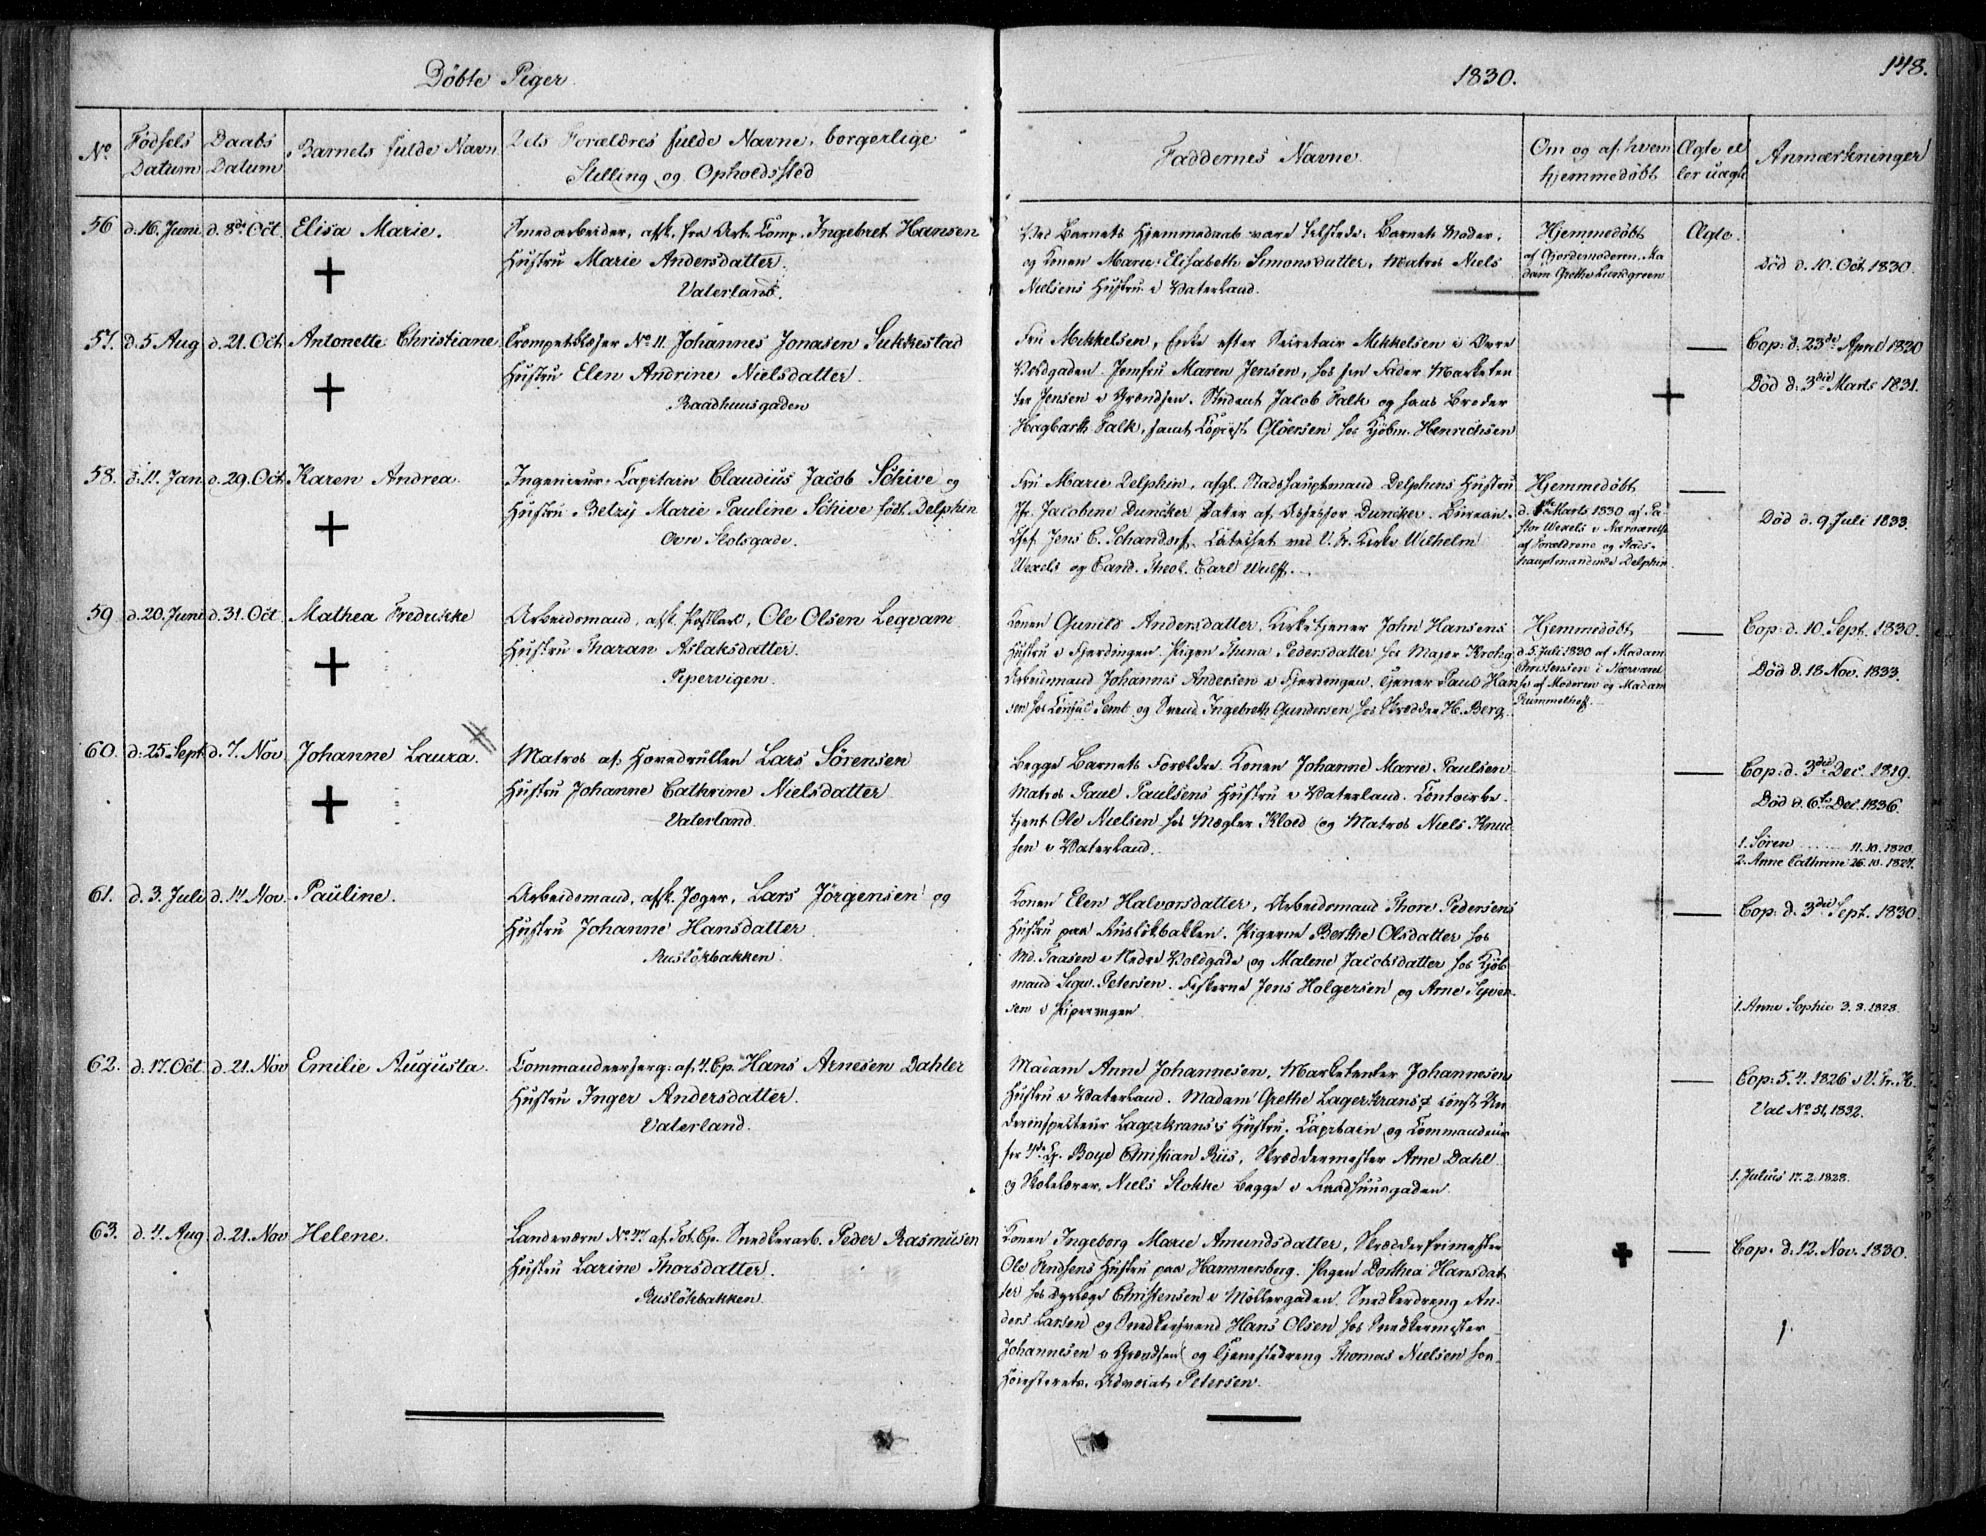 Döbte Piger
1830.
148.
No
Födsels Datum
Daabs Datum
Barnets fulde Navn
Dets Forældres fulde Navne, borgerlige
Stilling og Opholdssted
Faddernes Navne
Om og af hvem
hjemmedöbt
Ægte el
ler uægte
Anmærkninger
56
d. 16. Juni
d. 8de Oct.
Elisa Marie.
Smedarbeider, afsk. fra Art. Comp. Ingebret Hansen
Hustru Marie Andersdatter.
Vaterland.
Ved Barnets Hjemmedaab vare tilstede: Barnets Moder,
og Konen Marie Elisabeth Simonsdatter, Matros Niels
Nielsens Hustru i Vaterland.
Hjemmedöbt
af Gjordemoderen Ma
dam Grethe Lundgreen
Ægte.
Död d. 10. Oct. 1830.
57.
d. 5 Aug
d. 21. Oct.
Antonette Christiane
Trompetblæser No 11. Johannes Jonasen Sukkestad
Hustru Elen Andrine Nielsdatter.
Raadhuusgaden
Fru Mikkelsen, Enke efter Secretair Mikkelsen i Övre
Voldgaden. Jomfru Maren Jensen, hos sin Fader Marketen
ter Jensen i Grændsen. Student Jacob Falk og hans Broder
Hagbarth Falk, samt Copist Glöersen hos Kjöbm. Henrichsen
Cop: d. 23de April 1830
Död d. 3die Marts 1831.
58.
d. 11. Jan
d. 29. Oct
Karen Andrea.
Ingenieur-Capitain Claudius Jacob Schive og
Hustru Betzy Marie Pauline Schive födt Delphin
Övre Slotsgade.
Fru Marie Delphin, afgl. Stadshauptmand Delphins Hustru
Jfr. Jacobine Duncker Datter af Assessor Duncker. Büreau-
Chef Jens C. Schandorf. Catechet ved V. Fr. Kirke Wilhelm
Wexels og Cand. Theol. Carl Wulff.
Hjemmedöbt
d. 1ste Marts 1830 af Pa-
stor Wexels i Nærværelse
af Forældrene og Stads-
hauptmandinde Delphin
Död d. 9 Juli 1833.
59
d. 20. Juni
d. 31. Oct
Mathea Fredrikke
Arbeidsmand, afsk. Postkarl, Ole Olsen Leqvam
Hustru Tharan Aslaksdatter.
Pipervigen.
Konen Gunild Andersdatter, Kirketjener John Hansens
Hustru i Fjerdingen. Pigen Thuna Pedersdatter hos Major Krohg
Arbeidsmand Johannes Andersen i Fjerdingen, Tjener Paul Han
sen hos Consul Semb og Svend Ingebreth Gundersen hos Skrædder H. Berg.
Hjemmedöbt
d. 5. Juli 1830 af Madam
Christensen i Nærværel
se af Moderen og Madam
Rummelhof.
Cop: d. 10. Sept. 1830.
Död d. 18 Nov. 1833.
60.
d. 25. Sept
d. 7. Nov.
Johanne Laura.
Matros af Hovedrullen Lars Sörensen
Hustru Johanne Cathrine Nielsdatter
Vaterland.
Begge Barnets Forældre. Konen Johanne Marie Paulsen
Matros Paul Paulsens Hustru i Vaterland. Contoirbe-
tjent Ole Nielsen hos Mægler Kloed og Matros Niels Knud
sen i Vaterland.
Cop: d. 3die Dec. 1819.
Död d. 6te Dec. 1836.
1. Sören 11.10.1820.
2. Anne Cathrine 26.10.1827.
61.
d. 3. Juli
d. 14. Nov.
Pauline.
Arbeidsmand, afsk. Jæger, Lars Jörgensen og
Hustru Johanne Hansdatter.
Ruslökbakken.
Konen Elen Halvorsdatter, Arbeidsmand Thore Pedersens
Hustru paa Ruslökbakken. Pigerne Berthe Olsdatter hos
Md. Taasen i Nedre Voldgade og Malene Jacobsdatter hos Kjöb-
mand Sigw. Petersen. Fiskerne Jens Holgersen og Arne Syver-
sen i Pipervigen.
Cop: d. 3die Sept. 1830.
1. Anne Sophie 3.8.1828.
62.
d. 17. Oct.
d. 21. Nov
Emilie Augusta.
Commandeerserg: af 4. Cp. Hans Arnesen Dahler
Hustru Inger Andersdatter.
Vaterland.
Madam Anne Johannesen, Marketenter Johannesens
Hustru i Vaterland. Madam Grethe Lagerkrans, const. Un
derinspekteur Lagerkrans's Hustru. Captain og Commandeur
for 4de Cp. Boye Christian Riis, Skræddermester Arne Dahl
og Skolelærer Niels Stokke begge i Raadhuusgaden.
Cop: 5.4.1826 i V. Fr. K.
Vac No. 51, 1832.
1. Julius 17.2.1828.
63.
d. 4. Aug
d. 21. Nov
Helene.
Landeværn No 47. af Cp. Snedkerarb. Peder Rasmusen
Hustru Larine Thorsdatter.
Ruslökbakken.
Konen Ingeborg Marie Amundsdatter, Skrædderfrimester
Ole Hustru paa Hammersborg. Pigen Dorthea Hansdat
ter hos Dyrlæge Christensen i Möllergaden. Snedkerdreng An-
ders Larsen og Snedkersvend Hans Olsen hos Snedkermester
Johannesen i Grændsen og Tjenestedreng Thomas Nielsen hos
Höiesterets-Advocat Petersen.
Cop. d. 12. Nov. 1830.
1.